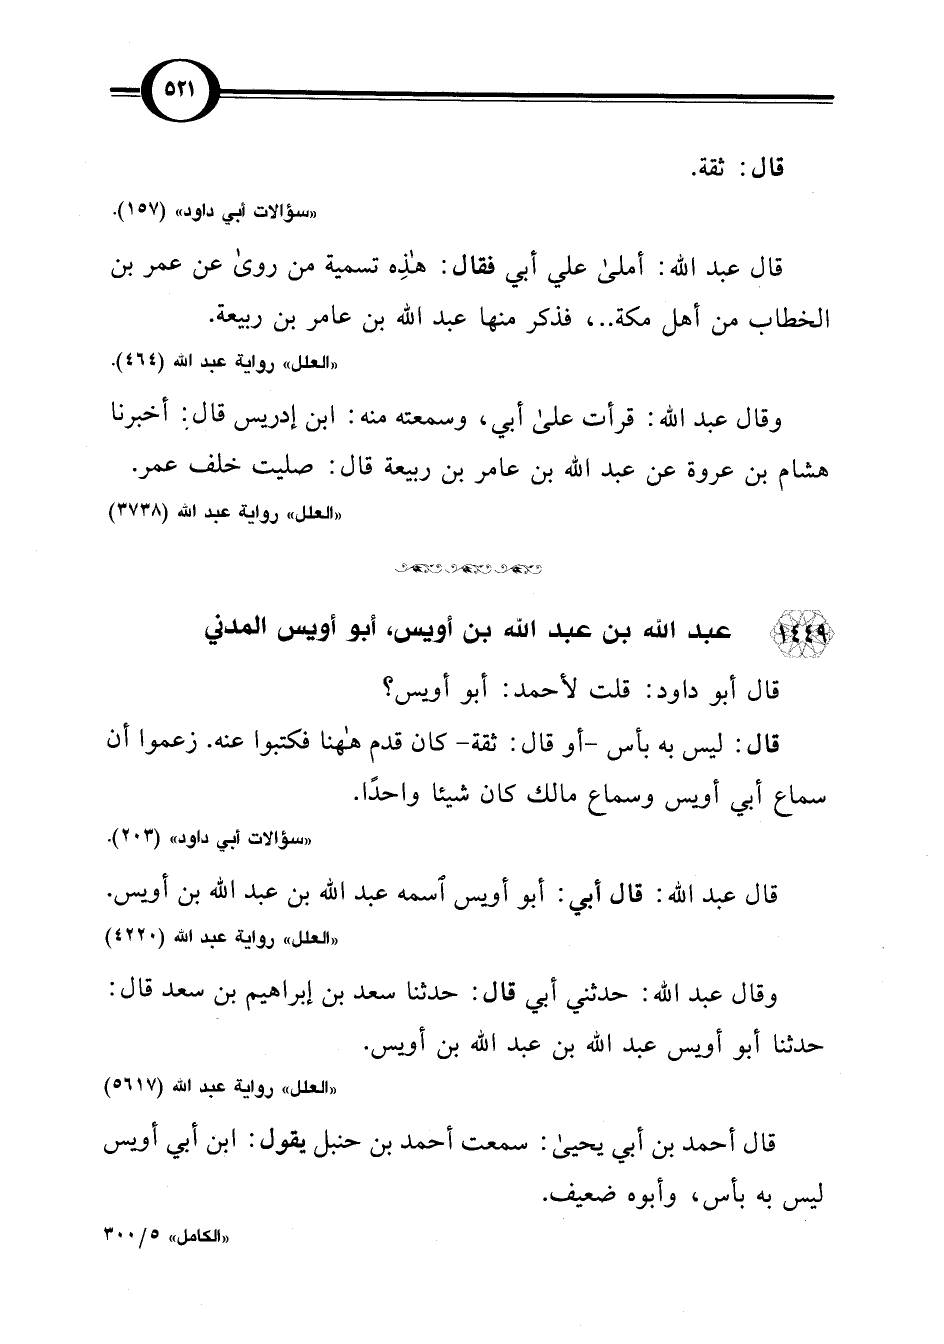 ٥٢١
قال: ثقة.
«سؤالات أبي داود» (١٥٧).
قال عبد الله: أملىٰ علي أبي فقال: هٰذِه تسمية من روىٰ عن عمر بن
الخطاب من أهل مكة..، فذكر منها عبد الله بن عامر بن ربيعة.
«العلل» رواية عبد الله (٤٦٤).
وقال عبد الله: قرأت علىٰ أبي، وسمعته منه: ابن إدريس قال: أخبرنا
هشام بن عروة عن عبد الله بن عامر بن ربيعة قال: صليت خلف عمر.
«العلل» رواية عبد الله (٣٧٣٨)
١٤٤٩ عبد الله بن عبد الله بن أويس، أبو أويس المدني
قال أبو داود: قلت لأحمد: أبو أويس؟
قال: ليس به بأس -أو قال: ثقة- كان قدم هٰهنا فكتبوا عنه. زعموا أن
سماع أبي أويس وسماع مالك كان شيئا واحدًا.
«سؤالات أبي داود» (٢٠٣).
قال عبد الله: قال أبي: أبو أويس ٱسمه عبد الله بن عبد الله بن أويس.
«العلل» رواية عبد الله (٤٢٢٠)
وقال عبد الله: حدثني أبي قال: حدثنا سعد بن إبراهيم بن سعد قال:
حدثنا أبو أويس عبد الله بن عبد الله بن أويس.
«العلل» رواية عبد الله (٥٦١٧)
قال أحمد بن أبي يحيىٰ: سمعت أحمد بن حنبل يقول: ابن أبي أويس
ليس به بأس، وأبوه ضعيف.
«الكامل» ٥/٣٠٠